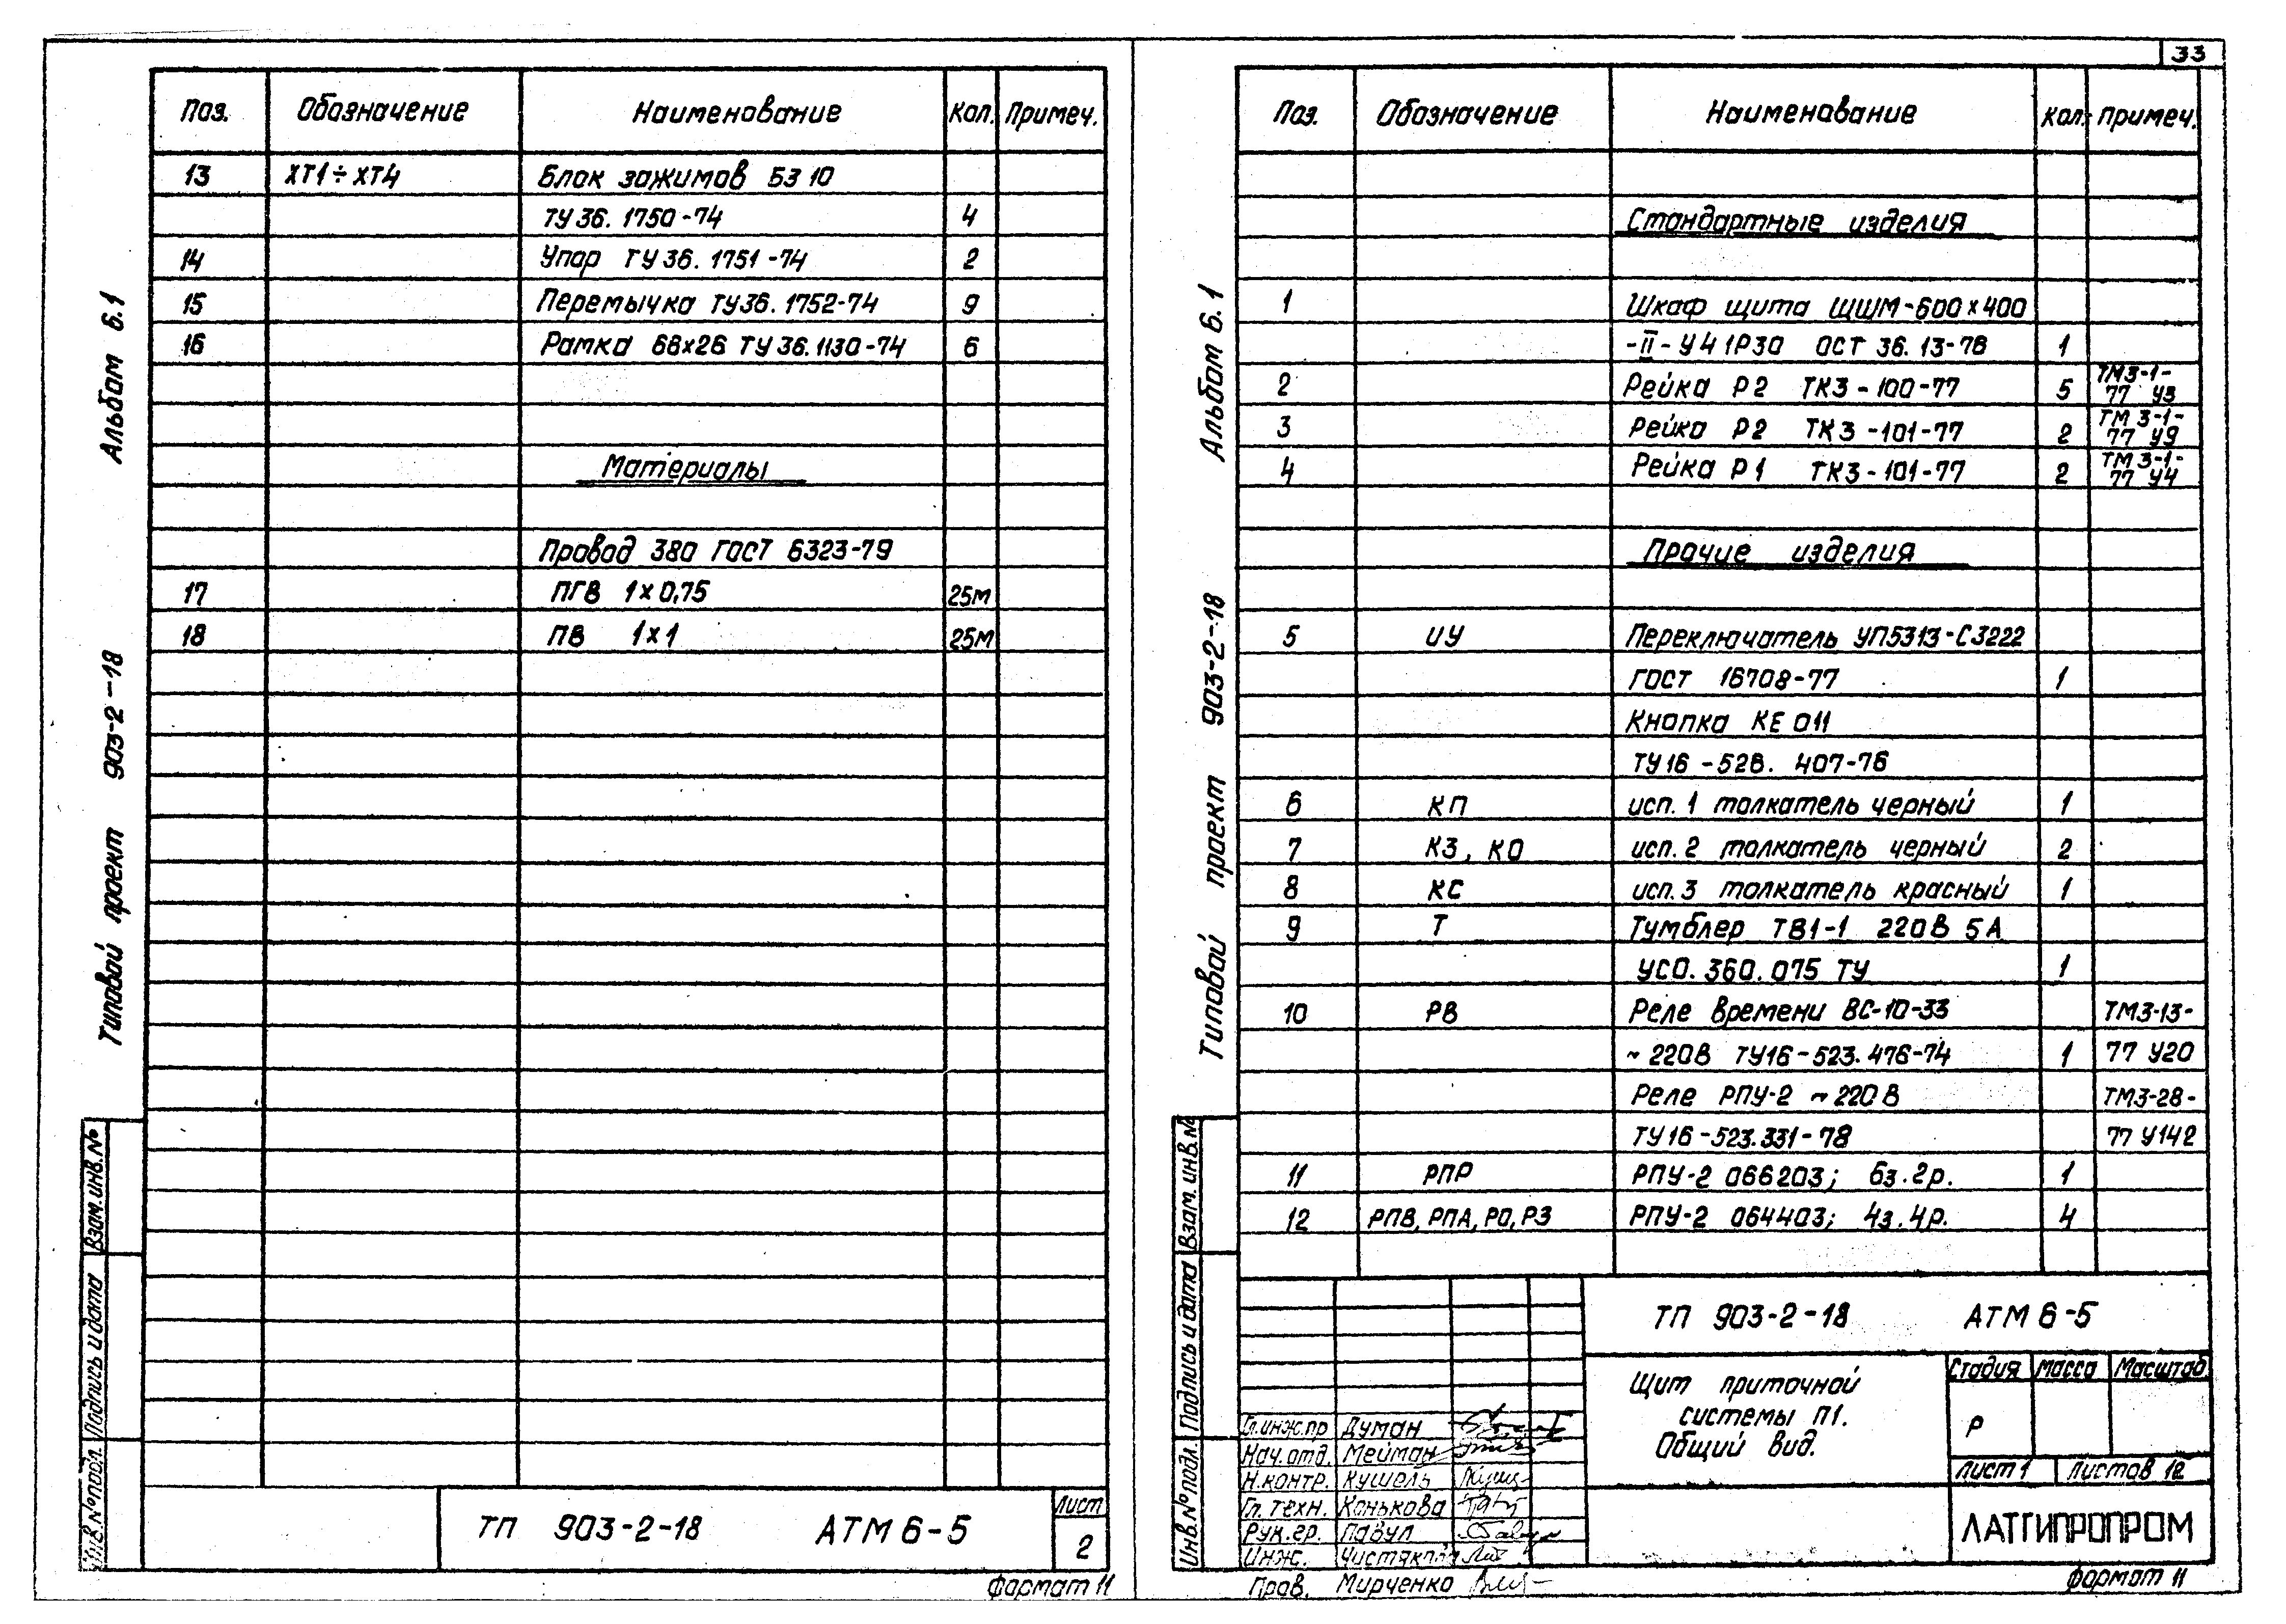 33
Поз. Обозначение Наименование Кол. Примеч.
13 XT1÷XT4 Блок зажимов БЗ 10
ТУ 36. 1750-74 4
14 Упор ТУ 36. 1751-74 2
15 Перемычка ТУ36. 1752-74 9
16 Рамка 66х26 ТУ 36.1130-74 6
Материалы
Провод 380 ГОСТ 6323-79
17 ПГВ 1х0,75 25м
18 ПВ 1х1 25м
Альбом 6.1
Типовой проект 903-2-18
Взам. инв. №
Подпись и дата
Инв. № подл.
ТП 903-2-18 АТМ 6-5
Лист
2
Формат 11
Поз. Обозначение Наименование Кол. Примеч.
Стандартные изделия
1 Шкаф щита ЩШМ-600х400
-II-У4 1Р30 ОСТ 36.13-76 1
2 Рейка Р2 ТК3-100-77 5 ТМ3-1-77 У3
3 Рейка Р2 ТК3-101-77 2 ТМ3-1-77 У9
4 Рейка Р1 ТК3-101-77 2 ТМ3-1-77 У4
Прочие изделия
5 ИУ Переключатель УП5313-С3222
ГОСТ 16708-77 1
Кнопка КЕ 011
ТУ16-526. 407-76
6 КП исп. 1 толкатель черный 1
7 КЗ, КО исп. 2 толкатель черный 2
8 КС исп. 3 толкатель красный 1
9 Т Тумблер ТВ1-1 220В 5А
УСО. 360. 075 ТУ 1
10 РВ Реле времени ВС-10-33 ТМ3-13-
~220В ТУ16-523.476-74 1 77 У20
Реле РПУ-2 ~220В ТМ3-28-
ТУ16-523.331-78 77 У142
11 РПР РПУ-2 066203; 6з.2р. 1
12 РПВ, РПА, РО, РЗ РПУ-2 064403; 4з.4р. 4
Альбом 6.1
Типовой проект 903-2-18
Взам. инв. №
Подпись и дата
Инв. № подл.
ТП 903-2-18 АТМ 6-5
Щит приточной
системы П1.
Общий вид.
Стадия Масса Масштаб
Р
Лист 1 Листов 12
ЛАТГИПРОПРОМ
Гл. инж. пр Думан
Нач. отд. Мейман
Н. контр. Кушель
Гл. техн. Конькова
Рук. гр. Павул
Инж.
Пров. Мирченко
Формат 11